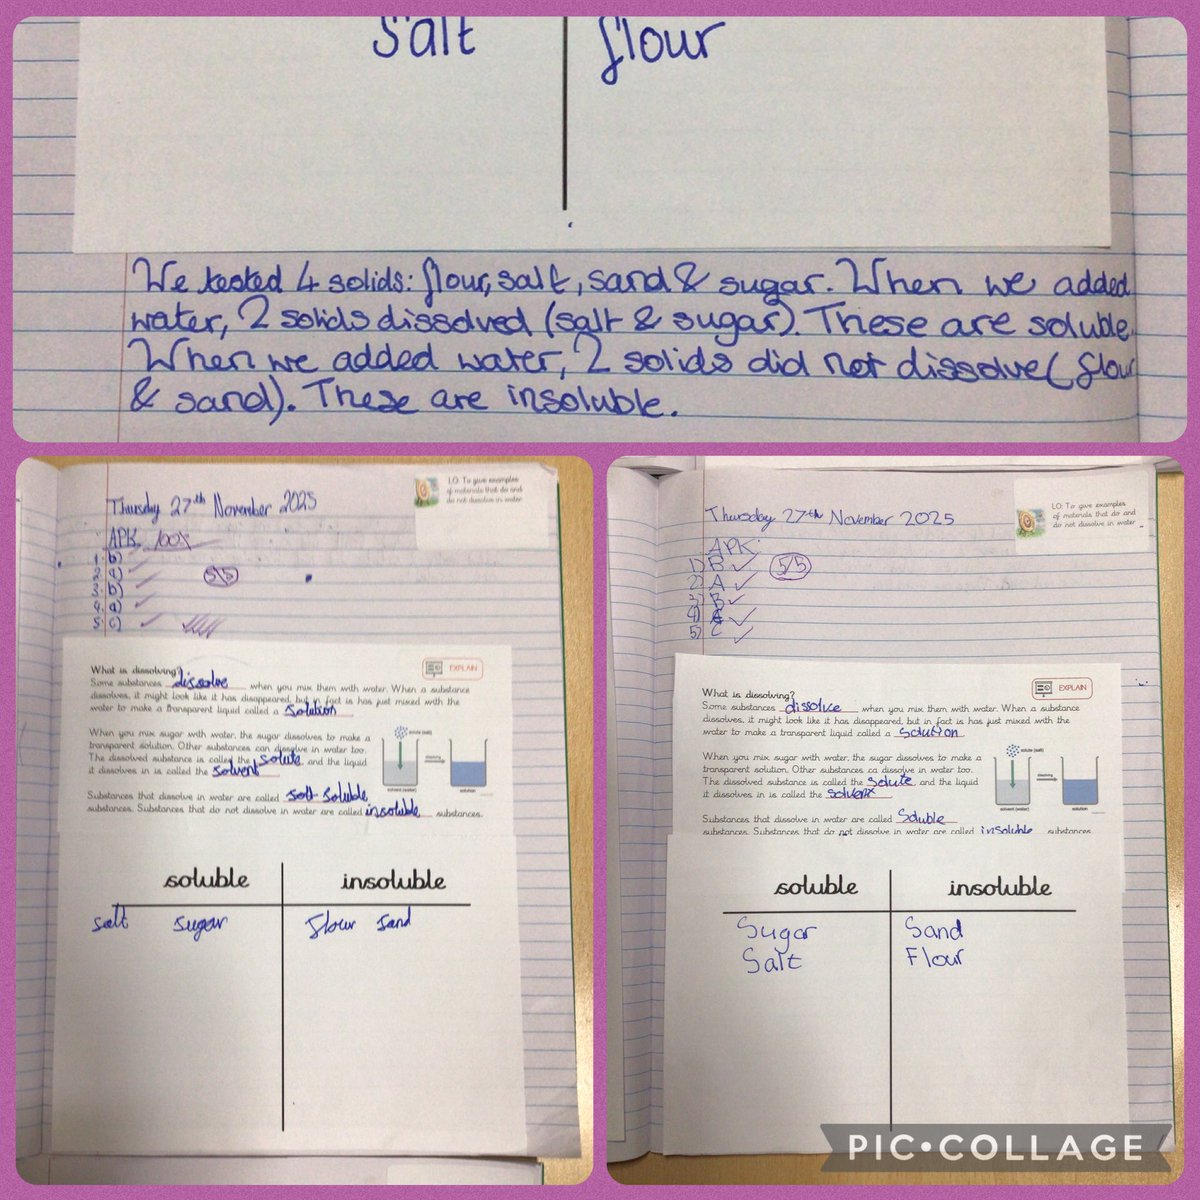 Salt flour
We tested 4 solids: flour, salt, sand & sugar. When we added
water, 2 solids dissolved (salt & sugar). These are soluble.
When we added water, 2 solids did not dissolve (flour
& sand). These are insoluble.
Thursday 27th November 2025
LO: To give examples
of materials that do and
do not dissolve in water
APK 100%
1. b)
2. a)
3. b)
4. a)
5. c)
5/5
EXPLAIN
What is dissolving?
Some substances dissolve when you mix them with water. When a substance
dissolves, it might look like it has disappeared, but in fact is has just mixed with the
water to make a transparent liquid called a solution
When you mix sugar with water, the sugar dissolves to make a
transparent solution. Other substances can dissolve in water too.
The dissolved substance is called the solute and the liquid
it dissolves in is called the solvent
solute (salt)
dissolving
solvent (water)
solution
Substances that dissolve in water are called soluble
substances. Substances that do not dissolve in water are called insoluble substances.
soluble insoluble
salt sugar flour sand
Thursday 27th November 2025
LO: To give examples
of materials that do and
do not dissolve in water
APK:
1) B
2) A
3) B
4)
5) C
5/5
EXPLAIN
What is dissolving?
Some substances dissolve when you mix them with water. When a substance
dissolves, it might look like it has disappeared, but in fact is has just mixed with the
water to make a transparent liquid called a solution
When you mix sugar with water, the sugar dissolves to make a
transparent solution. Other substances ca dissolve in water too.
The dissolved substance is called the solute and the liquid
it dissolves in is called the solvent
solute (salt)
dissolving
solvent (water)
solution
Substances that dissolve in water are called Soluble
substances. Substances that do not dissolve in water are called insoluble substances
soluble insoluble
Sugar Sand
Salt Flour
PIC•COLLAGE